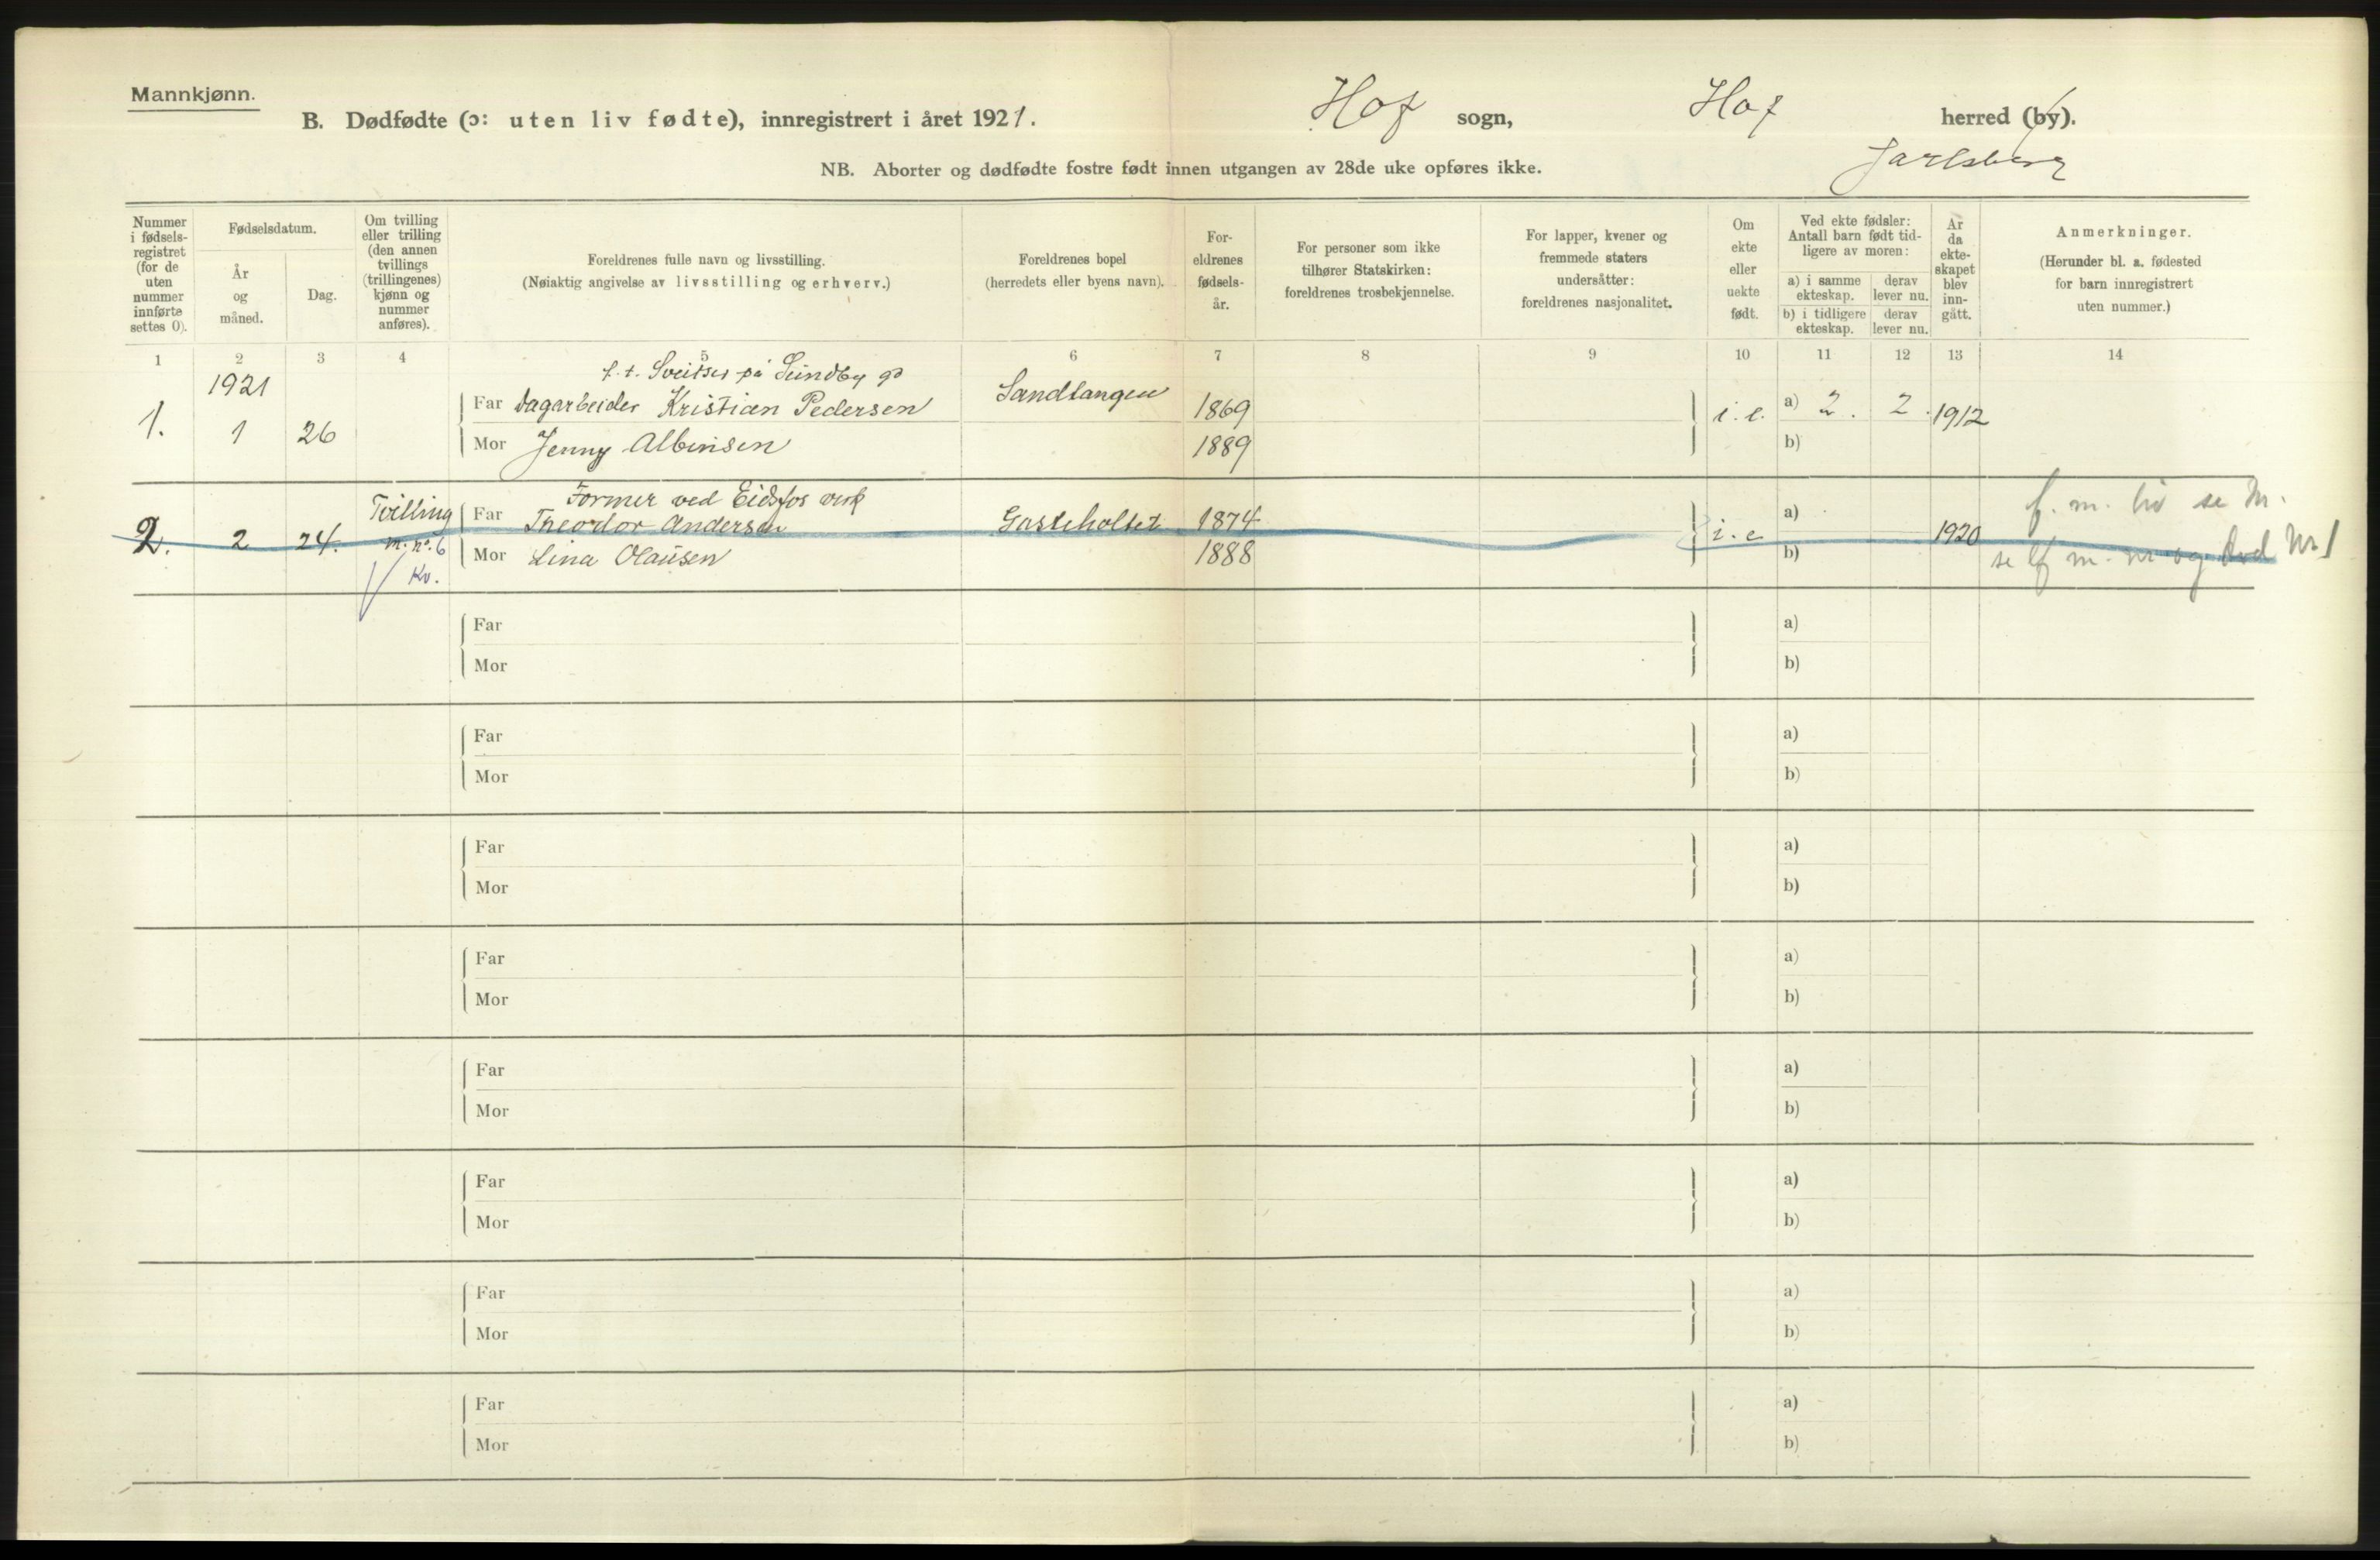 Mannkjønn.
B. Dødfødte (ɔ: uten liv fødte), innregistrert i året 1921. Hof sogn, Hof herred (by).
Jarlsberg
NB. Aborter og dødfødte fostre født innen utgangen av 28de uke opføres ikke.
Nummer
i fødsels-
registret
(for de
uten
nummer
innførte
settes 0).
Fødselsdatum.
År
og
måned.
Dag.
Om tvilling
eller trilling
(den annen
tvillings
(trillingenes)
kjønn og
nummer
anføres).
Foreldrenes fulle navn og livsstilling.
(Nøiaktig angivelse av livsstilling og erhverv.)
Foreldrenes bopel
(herredets eller byens navn).
For-
eldrenes
fødsels-
år.
For personer som ikke
tilhører Statskirken:
foreldrenes trosbekjennelse.
For lapper, kvener og
fremmede staters
undersåtter:
foreldrenes nasjonalitet.
Om
ekte
eller
uekte
født.
Ved ekte fødsler:
Antall barn født tid-
ligere av moren:
a) i samme
ekteskap.
derav
lever nu.
b) i tidligere
ekteskap.
derav
lever nu.
År
da
ekte-
skapet
blev
inn-
gått.
Anmerkninger.
(Herunder bl. a. fødested
for barn innregistrert
uten nummer.)
1 2 3 4 5 6 7 8 9 10 11 12 13 14
1921
f. t. Sveitser på Sundby gd
1. 1 26 Far Dagarbeider Kristian Pedersen Sandtangen 1869 i. e. a) 2. 2. 1912
Mor Jenny Albinsen 1889 b)
Tvilling Former ved Eidsfos verk f. m. liv se Nr.
2. 2 24. m. nº. 6 Far Theodor Andersen 1874 i. e a) 1920
Kv. Mor Lina Olausen 1888 b) se lf m. nr og Død Nr 1
Far a)
Mor b)
Far a)
Mor b)
Far a)
Mor b)
Far a)
Mor b)
Far a)
Mor b)
Far a)
Mor b)
Far a)
Mor b)
Far a)
Mor b)